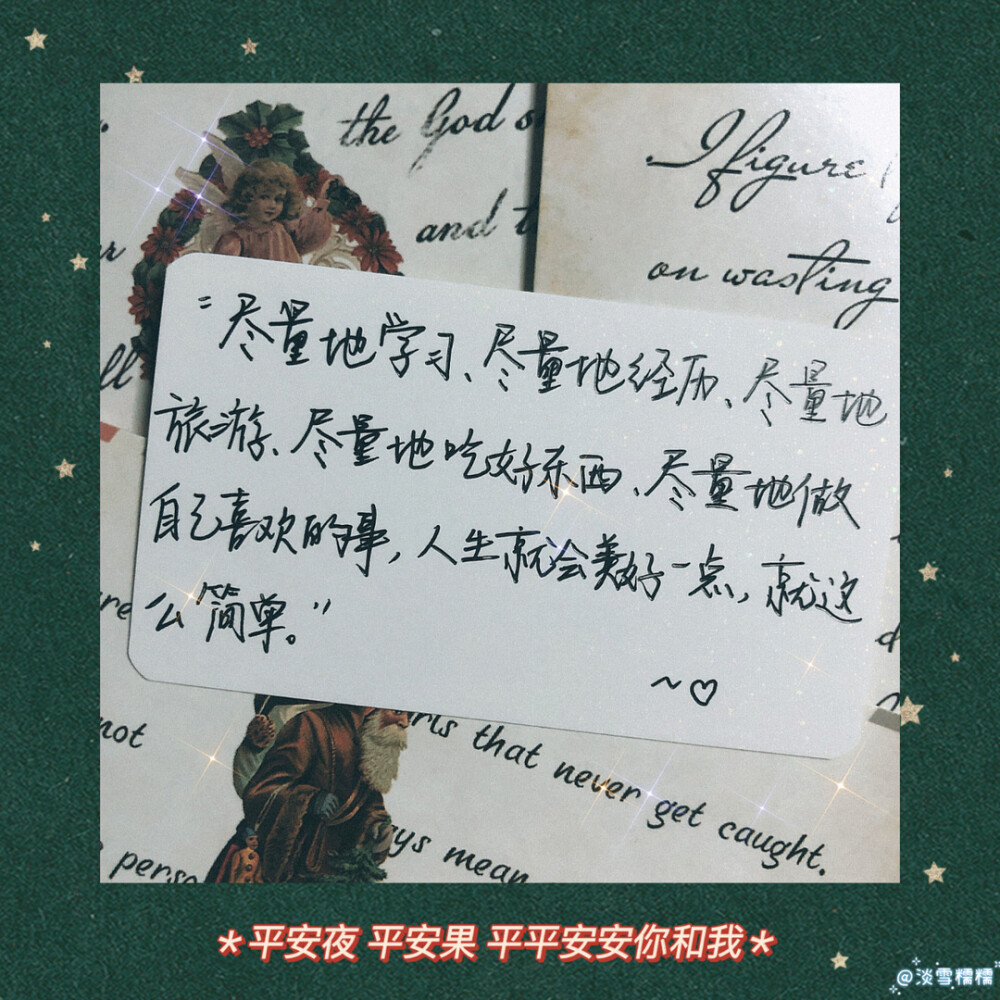 the God s
and t
I figure
on wasting
ll
"尽量地学习、尽量地经历、尽量地
旅游、尽量地吃好东西、尽量地做
自己喜欢的事,人生就会美好一点,就这
么简单。"
~♡
not
rls that never get caught.
ys mean
perso
*平安夜 平安果 平平安安你和我*
@淡雪糯糯